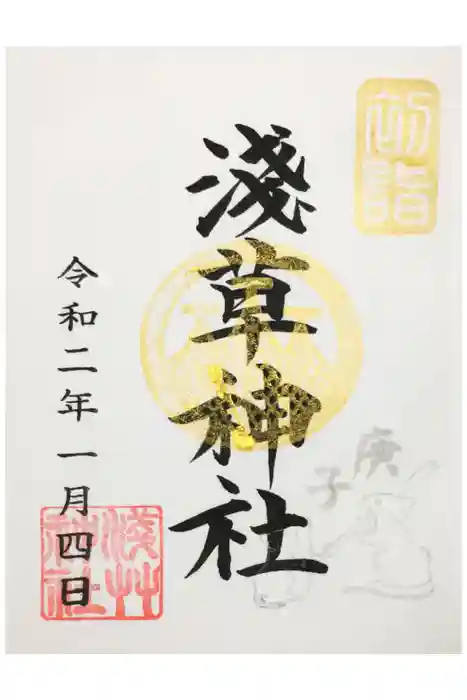 初詣
淺草神社
庚子
令和二年一月四日
淺草神社